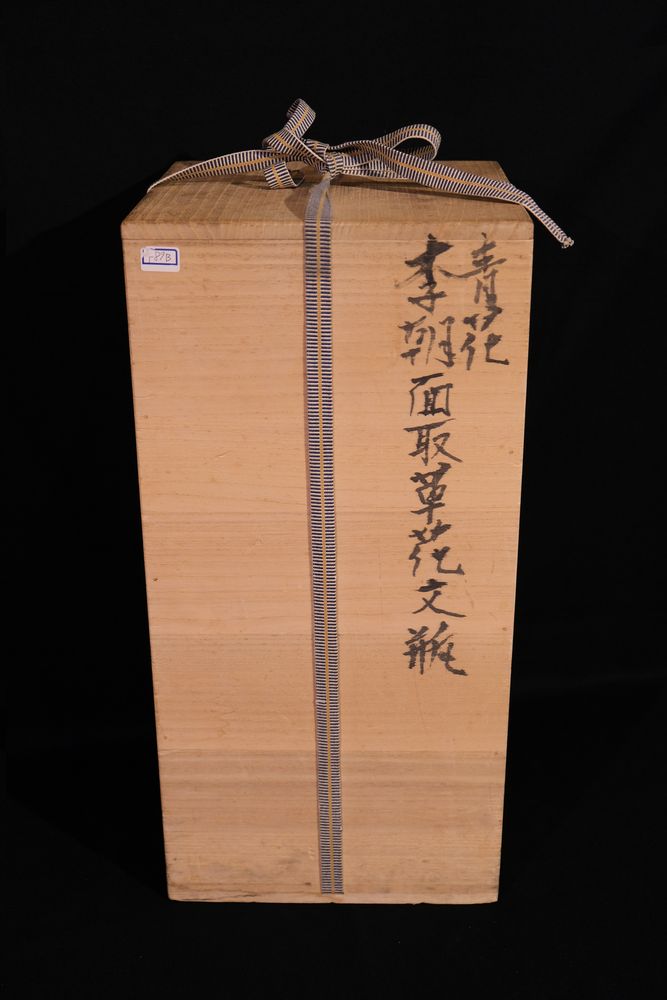 青花
李朝面取草花文瓶